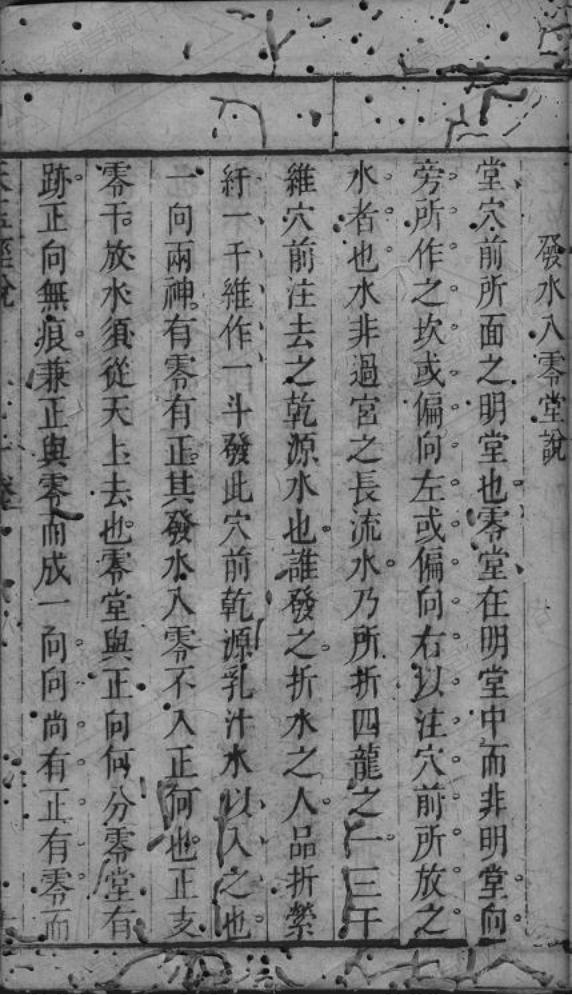 發水入零堂說
堂穴前所面之明堂也零堂在明堂中而非明堂向
旁所作之坎或偏向左或偏向右以注穴前所放之
水者也水非過宮之長流水乃所折四龍之一三干
維穴前注去之乾源水也誰發之折水之人品折縈
紆一干維作一斗發此穴前乾源乳汁水以入之也
一向兩神有零有正其發水入零不入正何也正支
零干放水須從天上去也零堂與正向何分零堂有
跡正向無痕兼正與零而成一向向尚有正有零而